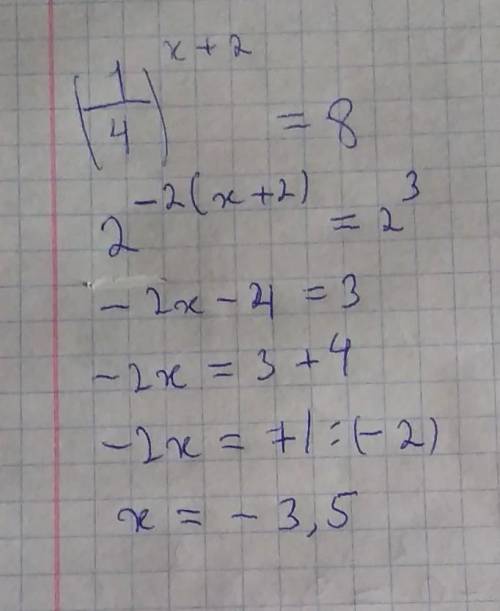 (1/4)^(x+2) = 8
2^(-2(x+2)) = 2^3
-2x - 4 = 3
-2x = 3 + 4
-2x = 7 | : (-2)
x = -3,5